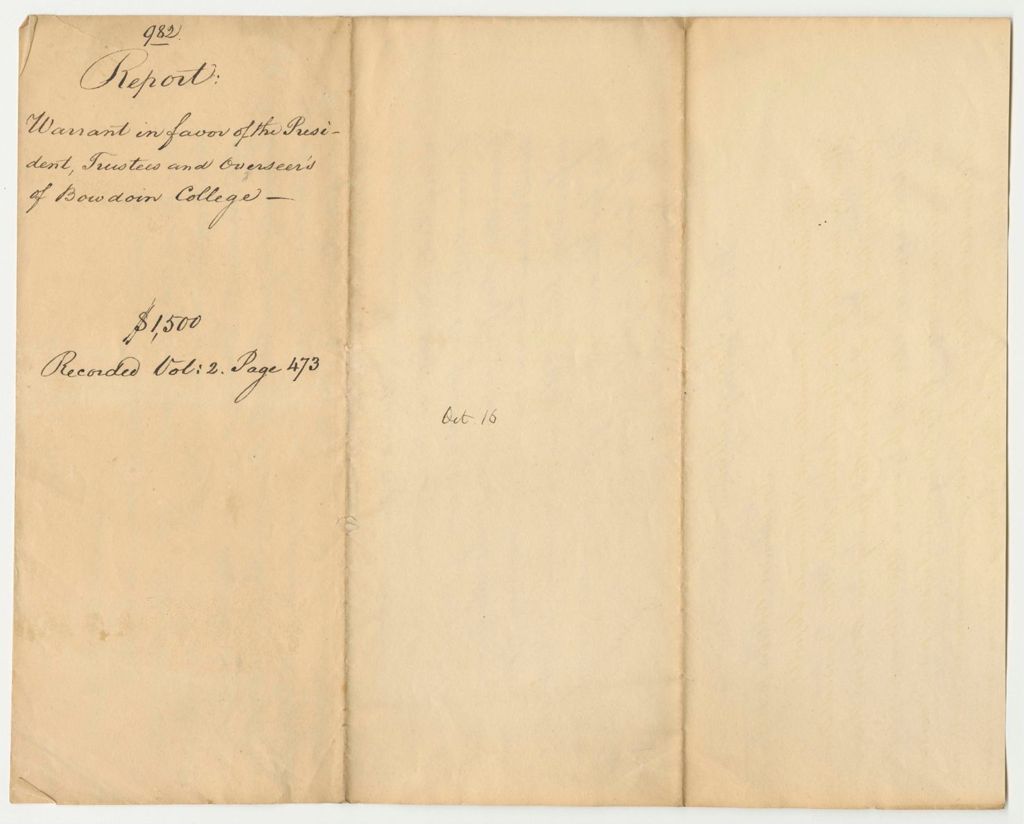 982.
Report:
Warrant in favor of the Presi-
dent, Trustees and Overseer's
of Bowdoin College —
$1,500
Recorded Vol: 2. Page 473
Oct. 16